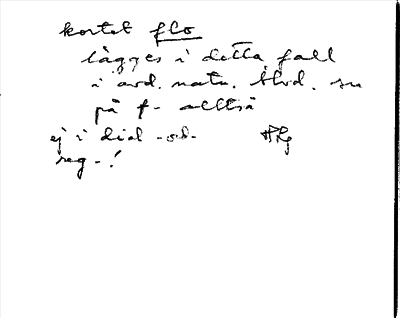 kortet flo
lägges i detta fall
i ord. natu. blvd. su
på f- alltså
ej i dial -od-
reg-!